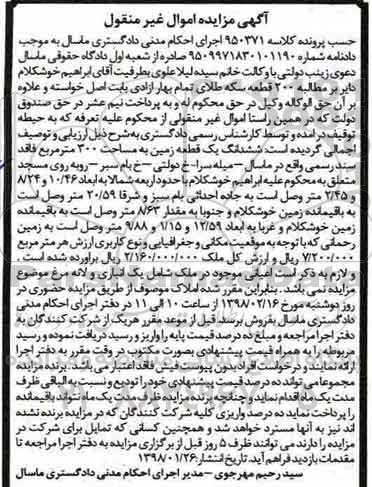 آگهی مزایده اموال غیر منقول
حسب پرونده کلاسه ۹۵۰۳۷۱ اجرای احکام مدنی دادگستری ماسال به موجب
دادنامه شماره ۹۵۰۹۹۷۱۸۳۰۱۰۱۱۹۰ صادره از شعبه اول دادگاه حقوقی ماسال
دعوی زینب دولتی با وکالت خانم سیده لیلا علوی بطرفیت آقای ابراهیم خوشکلام
دایر بر مطالبه ۲۰۰ قطعه سکه طلای تمام بهار آزادی بابت اصل خواسته و علاوه
بر آن حق الوکاله وکیل در حق محکوم له و به پرداخت نیم عشر در حق صندوق
دولت که در همین راستا اموال غیر منقولی از محکوم علیه تعرفه که به حیطه
توقیف درآمده و توسط کارشناس رسمی دادگستری به شرح ذیل ارزیابی و توصیف
اجمالی گردیده است: ششدانگ یک قطعه زمین به مساحت ۳۰۰ مترمربع فاقد
سند رسمی واقع در ماسال – میله سرا – خ دولتی – خ بام سبز – روبه روی مسجد
متعلق به محکوم علیه ابراهیم خوشکلام با حدود اربعه شمالا به ابعاد ۱۰/۴۶ و ۸/۲۴
و ۲/۴۵ متر وصل است به جاده احداثی بام سبز و شرقا ۲۰/۵۹ متر وصل است
به باقیمانده زمین خوشکلام و جنوبا به مقدار ۸/۶۳ متر وصل است به باقیمانده
زمین خوشکلام و غربا به ابعاد ۱۲/۵۹ و ۱/۱۵ و ۹/۸۸ متر وصل است به زمین
رحمانی که با توجه به موقعیت مکانی و جغرافیایی و نوع کاربری ارزش هر متر مربع
۷/۲۰۰/۰۰۰ ریال و ارزش کل ملک ۲/۱۶۰/۰۰۰/۰۰۰ ریال برآورده شده است .
و لازم به ذکر است اعیانی موجود در ملک شامل یک انباری و لانه مرغ موضوع
مزایده نمی باشد . بنابراین مقرر شده املاک موصوف از طریق مزایده حضوری در
روز دوشنبه مورخ ۱۳۹۸/۰۲/۱۶ از ساعت ۱۰ الی ۱۱ در دفتر اجرای احکام مدنی
دادگستری ماسال بفروش برسد. قبل از موعد مقرر هریک از شرکت کنندگان به
دفتر اجرا مراجعه و مبلغ ده درصد قیمت پایه را واریز و رسید دریافت نموده و رسید
مربوطه را به همراه قیمت پیشنهادی بصورت مکتوب در وقت مقرر به دفتر اجرا
ارائه نمایند و درخواست افراد بدون پیوست فیش فاقد اعتبار می باشد. برنده مزایده
مجموعا می تواند ده درصد قیمت پیشنهادی خود را تودیع و نسبت به الباقی ظرف
مدت یک ماه اقدام نماید و چنانچه برنده مزایده ظرف مدت یک ماه نتواند باقیمانده
را پرداخت نماید ده درصد واریزی کلیه شرکت کنندگان که در مزایده برنده نشده
اند نیز به آنها مسترد خواهد شد و همچنین کسانی که تمایل برای شرکت در
مزایده را دارند می توانند ظرف ۵ روز قبل از برگزاری مزایده به دفتر اجرا مراجعه تا
مقدمات بازدید فراهم آید. تاریخ انتشار: ۱۳۹۸/۰۱/۲۶
سید رحیم مهرجوی – مدیر اجرای احکام مدنی دادگستری ماسال